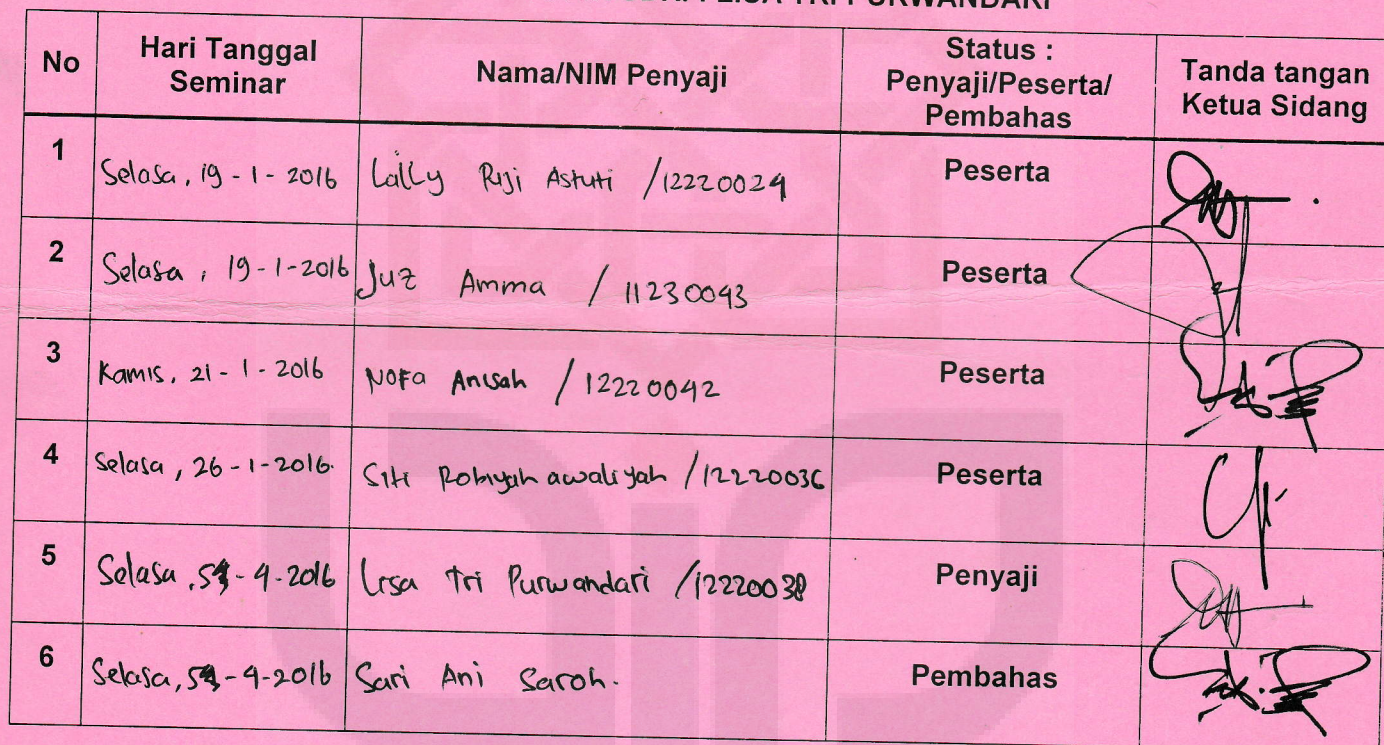 LISA TRI PURWANDARI
No Hari Tanggal Seminar Nama/NIM Penyaji Status : Penyaji/Peserta/ Pembahas Tanda tangan Ketua Sidang
1 Selasa, 19 - 1 - 2016 Lally Riji Astuti /12220029 Peserta
2 Selasa, 19-1-2016 Juz Amma / 11230043 Peserta
3 Kamis, 21 - 1 - 2016 Nofa Anisah / 12220042 Peserta
4 Selasa, 26-1-2016. Siti Robiyah awaliyah /12220036 Peserta
5 Selasa, -4-2016 Lisa Tri Purwandari /12220038 Penyaji
6 Selasa, -4-2016 Sari Ani Saroh. Pembahas